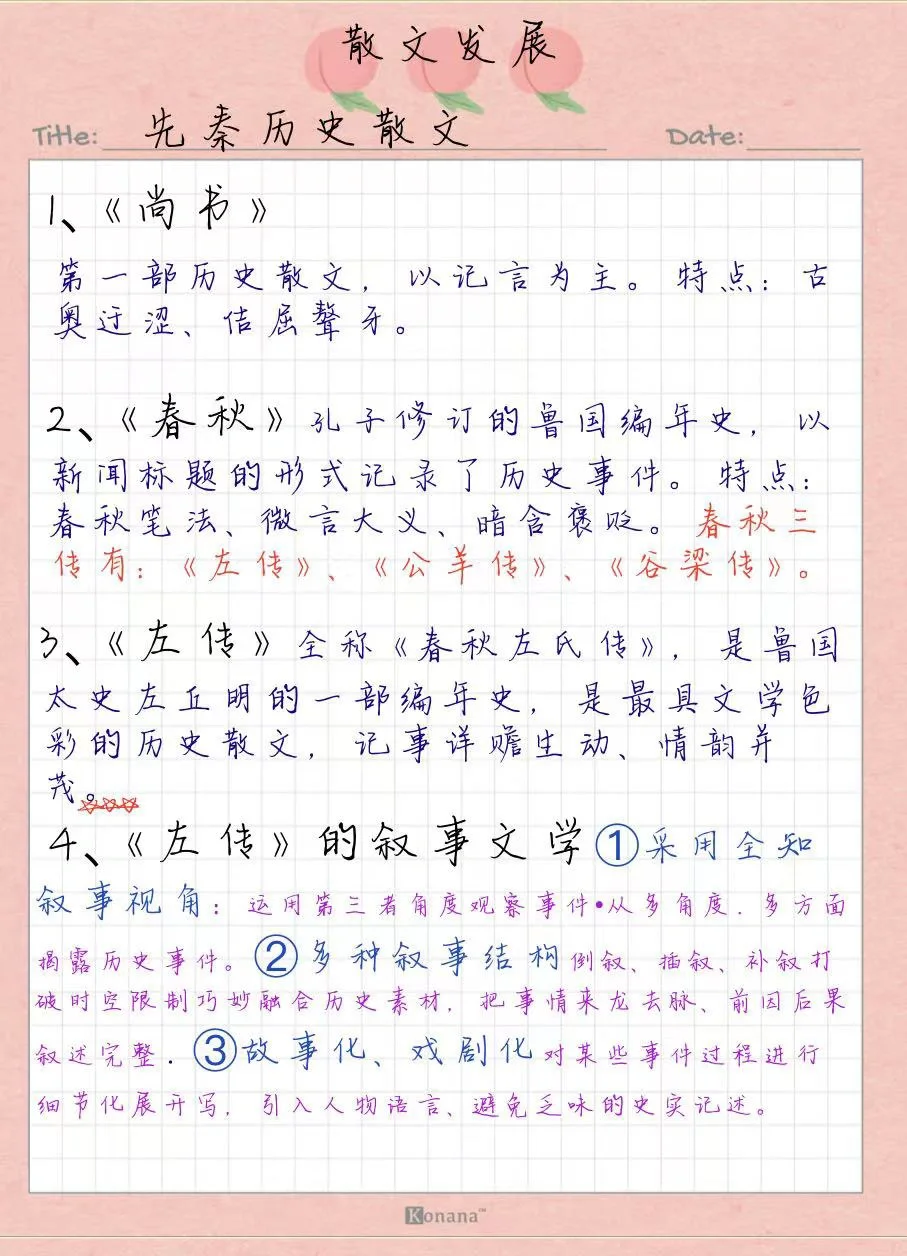 散文发展
Title: 先秦历史散文 Date:
1、《尚书》
第一部历史散文，以记言为主。特点：古
奥迂涩、佶屈聱牙。
2、《春秋》孔子修订的鲁国编年史，以
新闻标题的形式记录了历史事件。特点：
春秋笔法、微言大义、暗含褒贬。春秋三
传有：《左传》、《公羊传》、《谷梁传》。
3、《左传》全称《春秋左氏传》，是鲁国
太史左丘明的一部编年史，是最具文学色
彩的历史散文，记事详赡生动、情韵并
茂。
4、《左传》的叙事文学①采用全知
叙事视角：运用第三者角度观察事件•从多角度.多方面
揭露历史事件。②多种叙事结构倒叙、插叙、补叙打
破时空限制巧妙融合历史素材，把事情来龙去脉、前因后果
叙述完整.③故事化、戏剧化对某些事件过程进行
细节化展开写，引入人物语言、避免乏味的史实记述。
Konana™